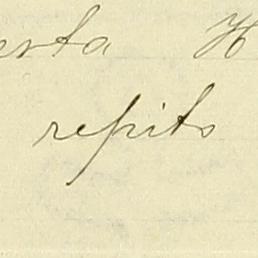 erta H
repito